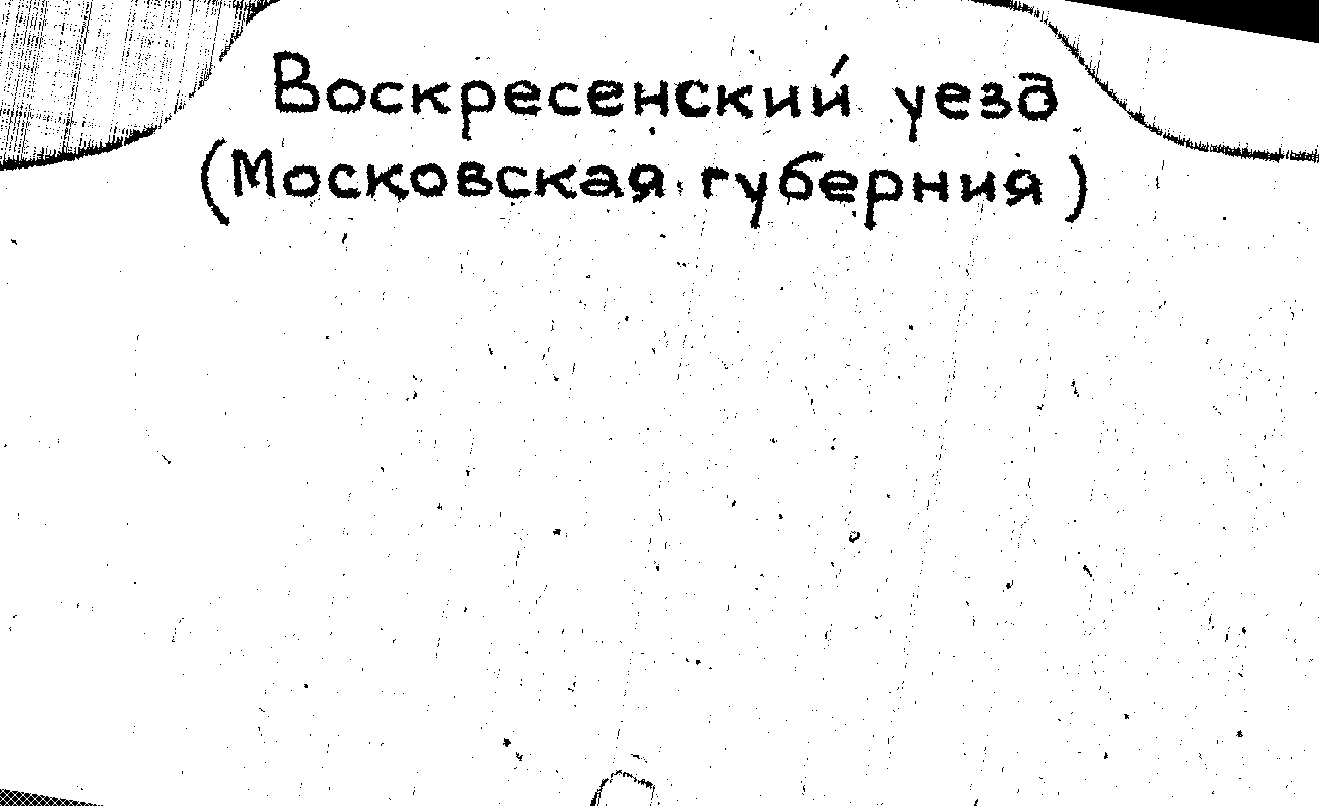 Воскресенский уезд
(Московская губерния)